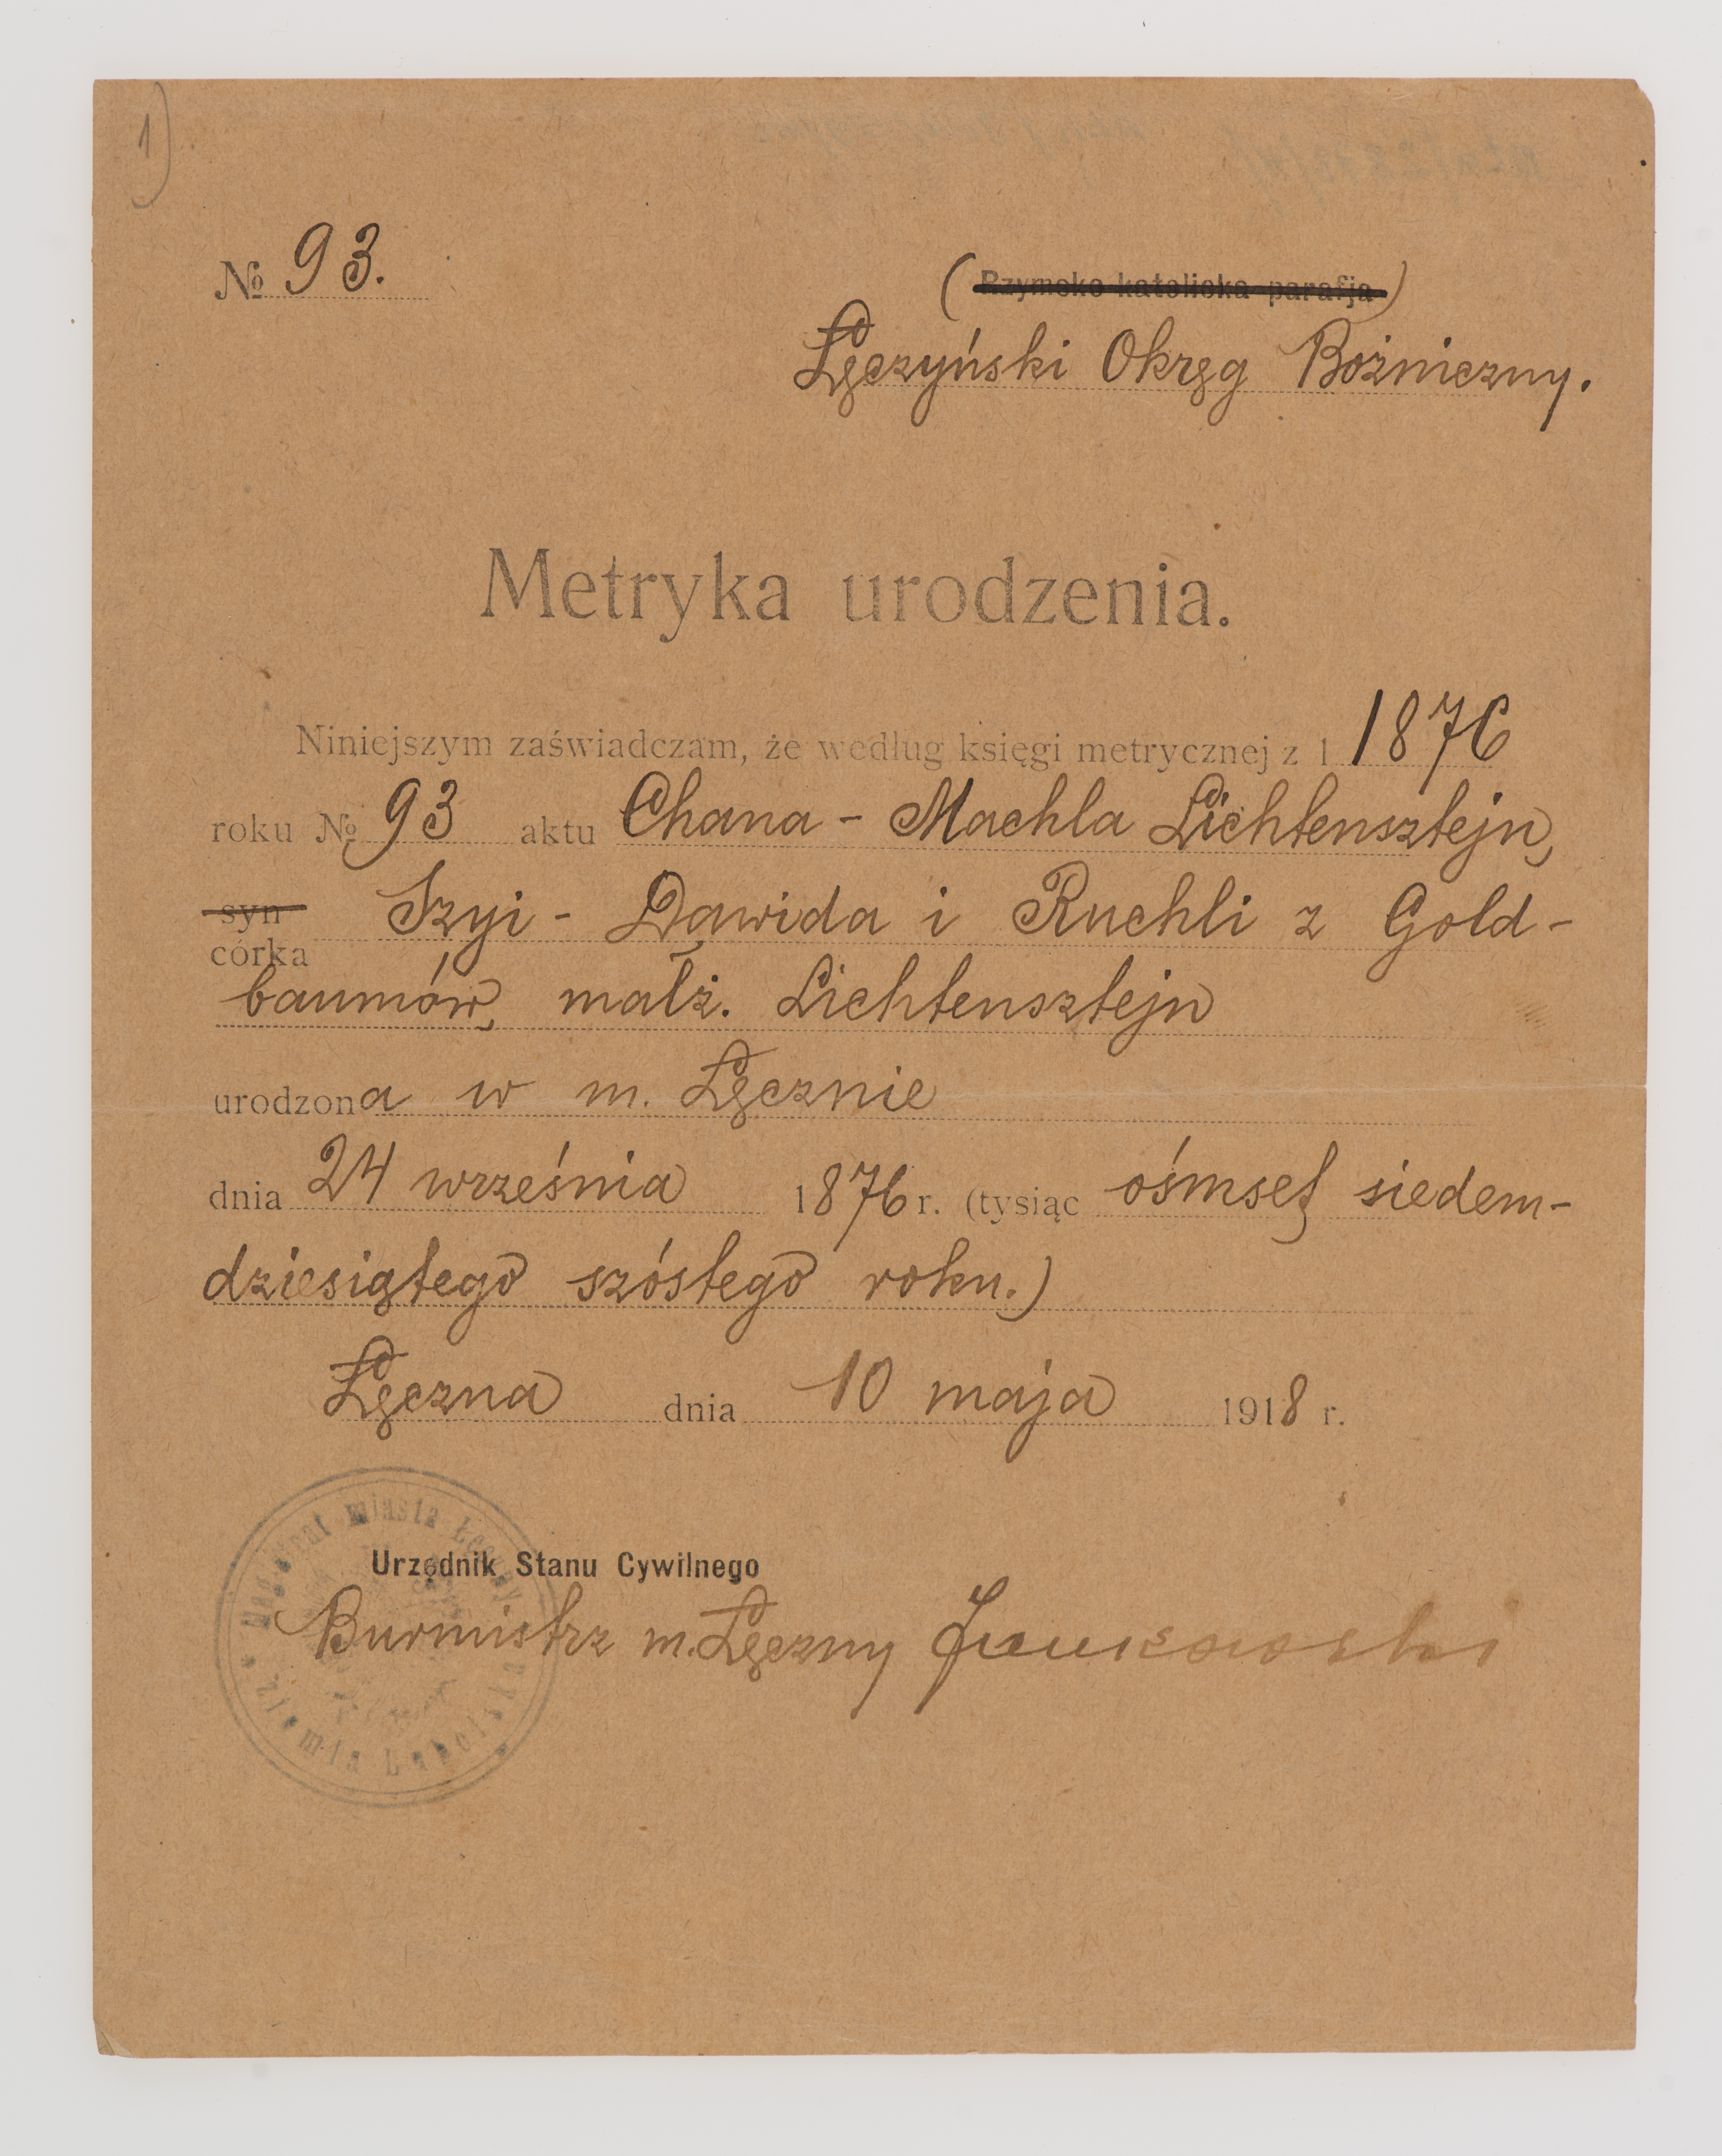 1)
№ 93.
(Rzymsko-katolicka parafja)
Łęczyński Okręg Bożniczny.
Metryka urodzenia.
Niniejszym zaświadczam, że według księgi metrycznej z 1 1876
roku № 93 aktu Chana - Machla Lichtensztejn,
syn Szyi - Dawida i Ruchli z Gold-
córka
baumów, małż. Lichtensztejn
urodzona w m. Łęcznie
dnia 24 września 1876 r. (tysiąc ośmset siedem-
dziesiątego szóstego roku.)
Łęczna dnia 10 maja 1918 r.
Magistrat miasta Łęczny
Urzędnik Stanu Cywilnego
Burmistrz m. Łęczny
Ziemia Lubelska